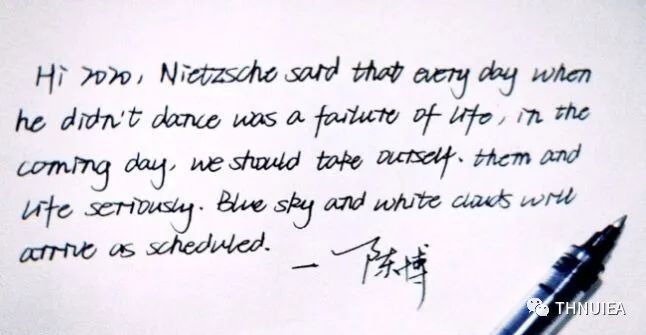 Hi 2020, Nietzsche said that every day when
he didn't dance was a failure of life, in the
coming day, we should take ourself. them and
life seriously. Blue sky and white clouds will
arrive as scheduled.
— 陈博
THNUIEA